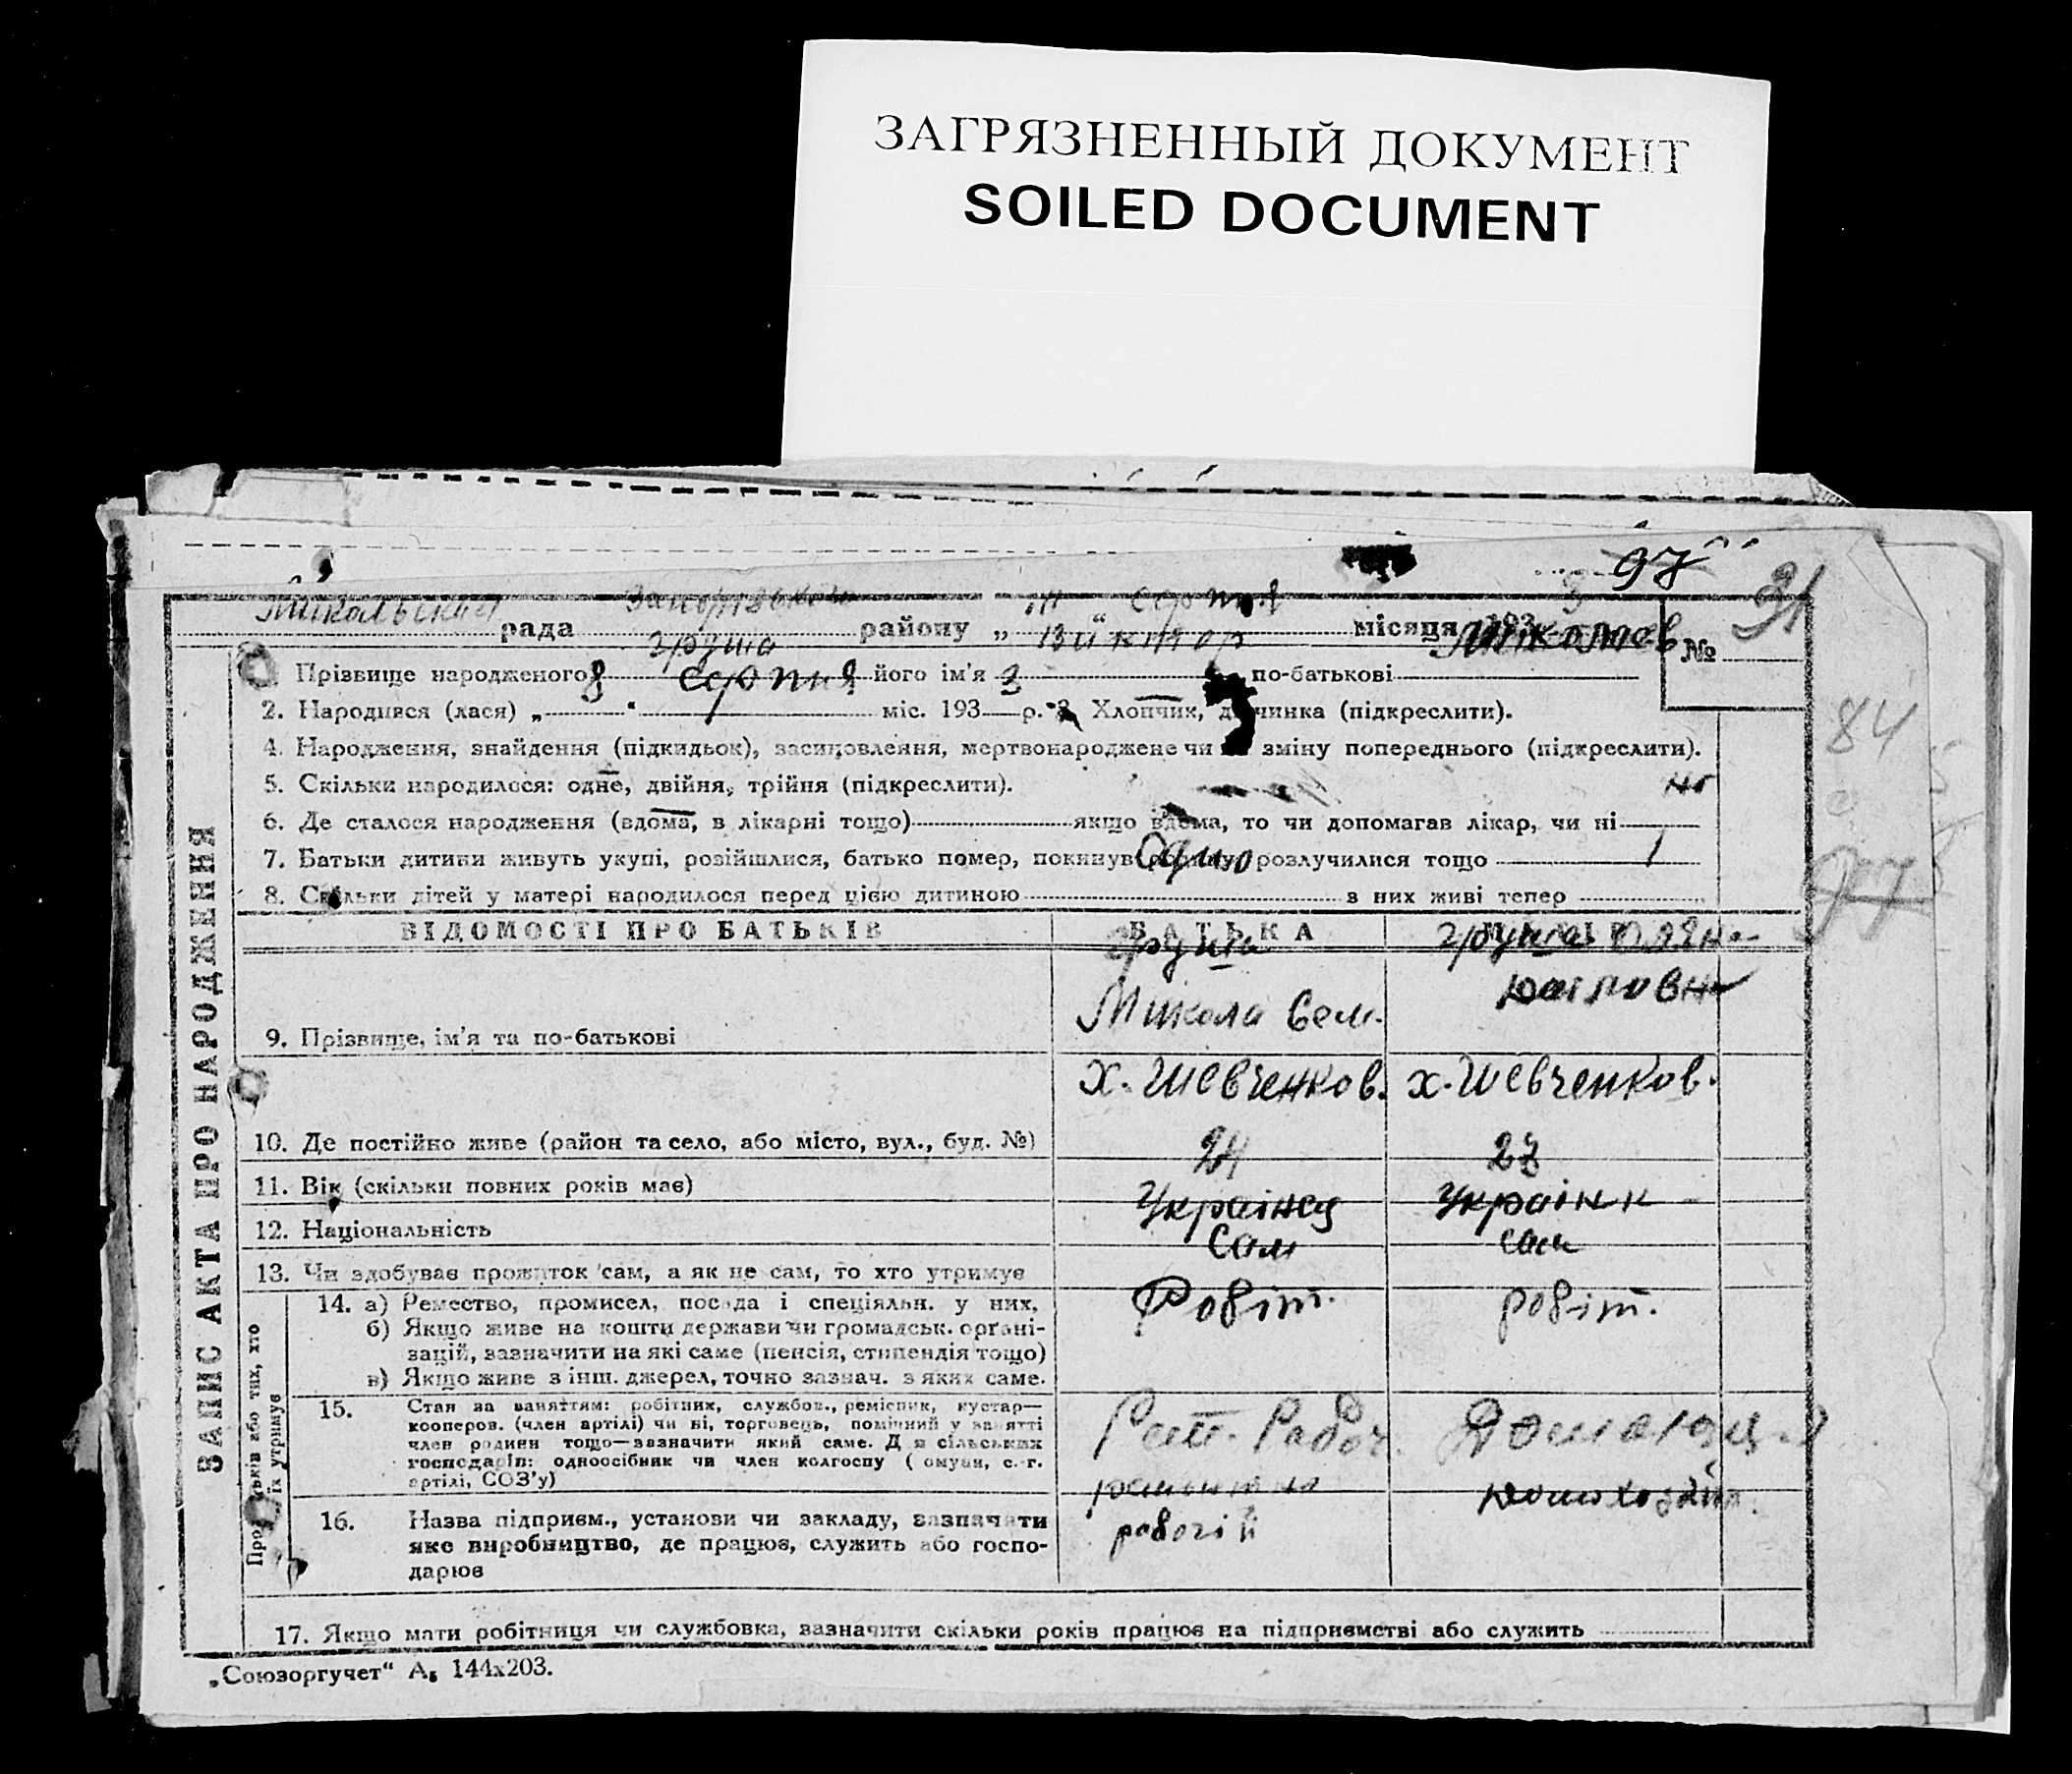 ЗАГРЯЗНЕННЫЙ ДОКУМЕНТ
SOILED DOCUMENT
97
31
рада району „ “ Серпня місяця 193 3 №
груша Віктор Миколаев
Прізвище народженого його ім'я по-батькові
8 Серпня 3
2. Народився (лася) „ “ міс. 193 р. 3. Хлопчик, дівчинка (підкреслити).
4. Народження, знайдення (підкидьок), засиновлення, мертвонароджене чи зміну попереднього (підкреслити).
84
5. Скільки народилося: одне, двійня, трійня (підкреслити).
ні
6. Де сталося народження (вдома, в лікарні тощо) якщо вдома, то чи допомагав лікар, чи ні
7. Батьки дитини живуть укупі, розійшлися, батько помер, покинув родину, розлучилися тощо
Одно 1
8. Скільки дітей у матері народилося перед цією дитиною з них живі тепер
97
ЗАПИС АКТА ПРО НАРОДЖЕННЯ
ВІДОМОСТІ ПРО БАТЬКІВ БАТЬКА МАТІР
Груша Груша
Микола Сем.
9. Прізвище, ім'я та по-батькові
х. Шевченков. х. Шевченков.
10. Де постійно живе (район та село, або місто, вул., буд. №)
24 23
11. Вік (скільки повних років має)
Українец Українк
12. Національність
Сам сам
13. Чи здобуває прожиток сам, а як не сам, то хто утримує
Про батьків або тих, хто їх утримує
14. а) Ремество, промисел, посада і спеціяльн. у них,
Робіт. робіт.
б) Якщо живе на кошти держави чи громадськ. орґані-
зацій, зазначити на які саме (пенсія, стипендія тощо)
в) Якщо живе з інш. джерел, точно зазнач. з яких саме.
15. Стан за заняттям: робітник, службов., ремісник, кустар—
кооперов. (член артілі) чи ні, торговець, помічний у занятті
член родини тощо—зазначити який саме. Для сільських
господарів: одноосібник чи член колгоспу (комуни, с.-г.
артілі, СОЗ'у)
Рем. Рабоч.
16. Назва підприєм., установи чи закладу, зазначити
робочій
яке виробництво, де працює, служить або госпо-
дарює
17. Якщо мати робітниця чи службовка, зазначити скільки років працює на підприємстві або служить
„Союзоргучет“ А₅ 144х203.